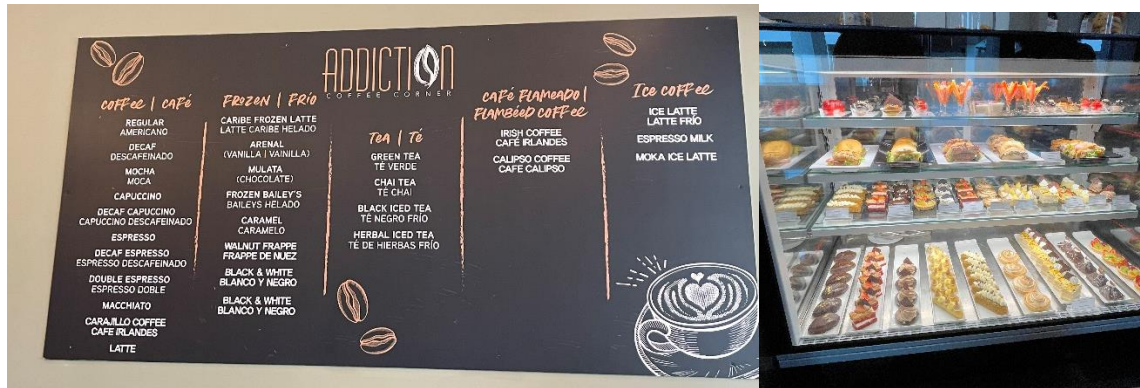 ADDICTION
COFFEE CORNER
COFFEE | CAFÉ
REGULAR
AMERICANO
DECAF
DESCAFEINADO
MOCHA
MOCA
CAPUCCINO
DECAF CAPUCCINO
CAPUCCINO DESCAFEINADO
ESPRESSO
DECAF ESPRESSO
ESPRESSO DESCAFEINADO
DOUBLE ESPRESSO
ESPRESSO DOBLE
MACCHIATO
CARAJILLO COFFEE
CAFE IRLANDES
LATTE
FROZEN | FRÍO
CARIBE FROZEN LATTE
LATTE CARIBE HELADO
ARENAL
(VANILLA | VAINILLA)
MULATA
(CHOCOLATE)
FROZEN BAILEY'S
BAILEYS HELADO
CARAMEL
CARAMELO
WALNUT FRAPPE
FRAPPE DE NUEZ
BLACK & WHITE
BLANCO Y NEGRO
BLACK & WHITE
BLANCO Y NEGRO
TEA | TÉ
GREEN TEA
TÉ VERDE
CHAI TEA
TÉ CHAI
BLACK ICED TEA
TÉ NEGRO FRÍO
HERBAL ICED TEA
TÉ DE HIERBAS FRÍO
CAFÉ FLAMEADO |
FLAMBÉED COFFEE
IRISH COFFEE
CAFÉ IRLANDES
CALIPSO COFFEE
CAFE CALIPSO
ICE COFFEE
ICE LATTE
LATTE FRÍO
ESPRESSO MILK
MOKA ICE LATTE